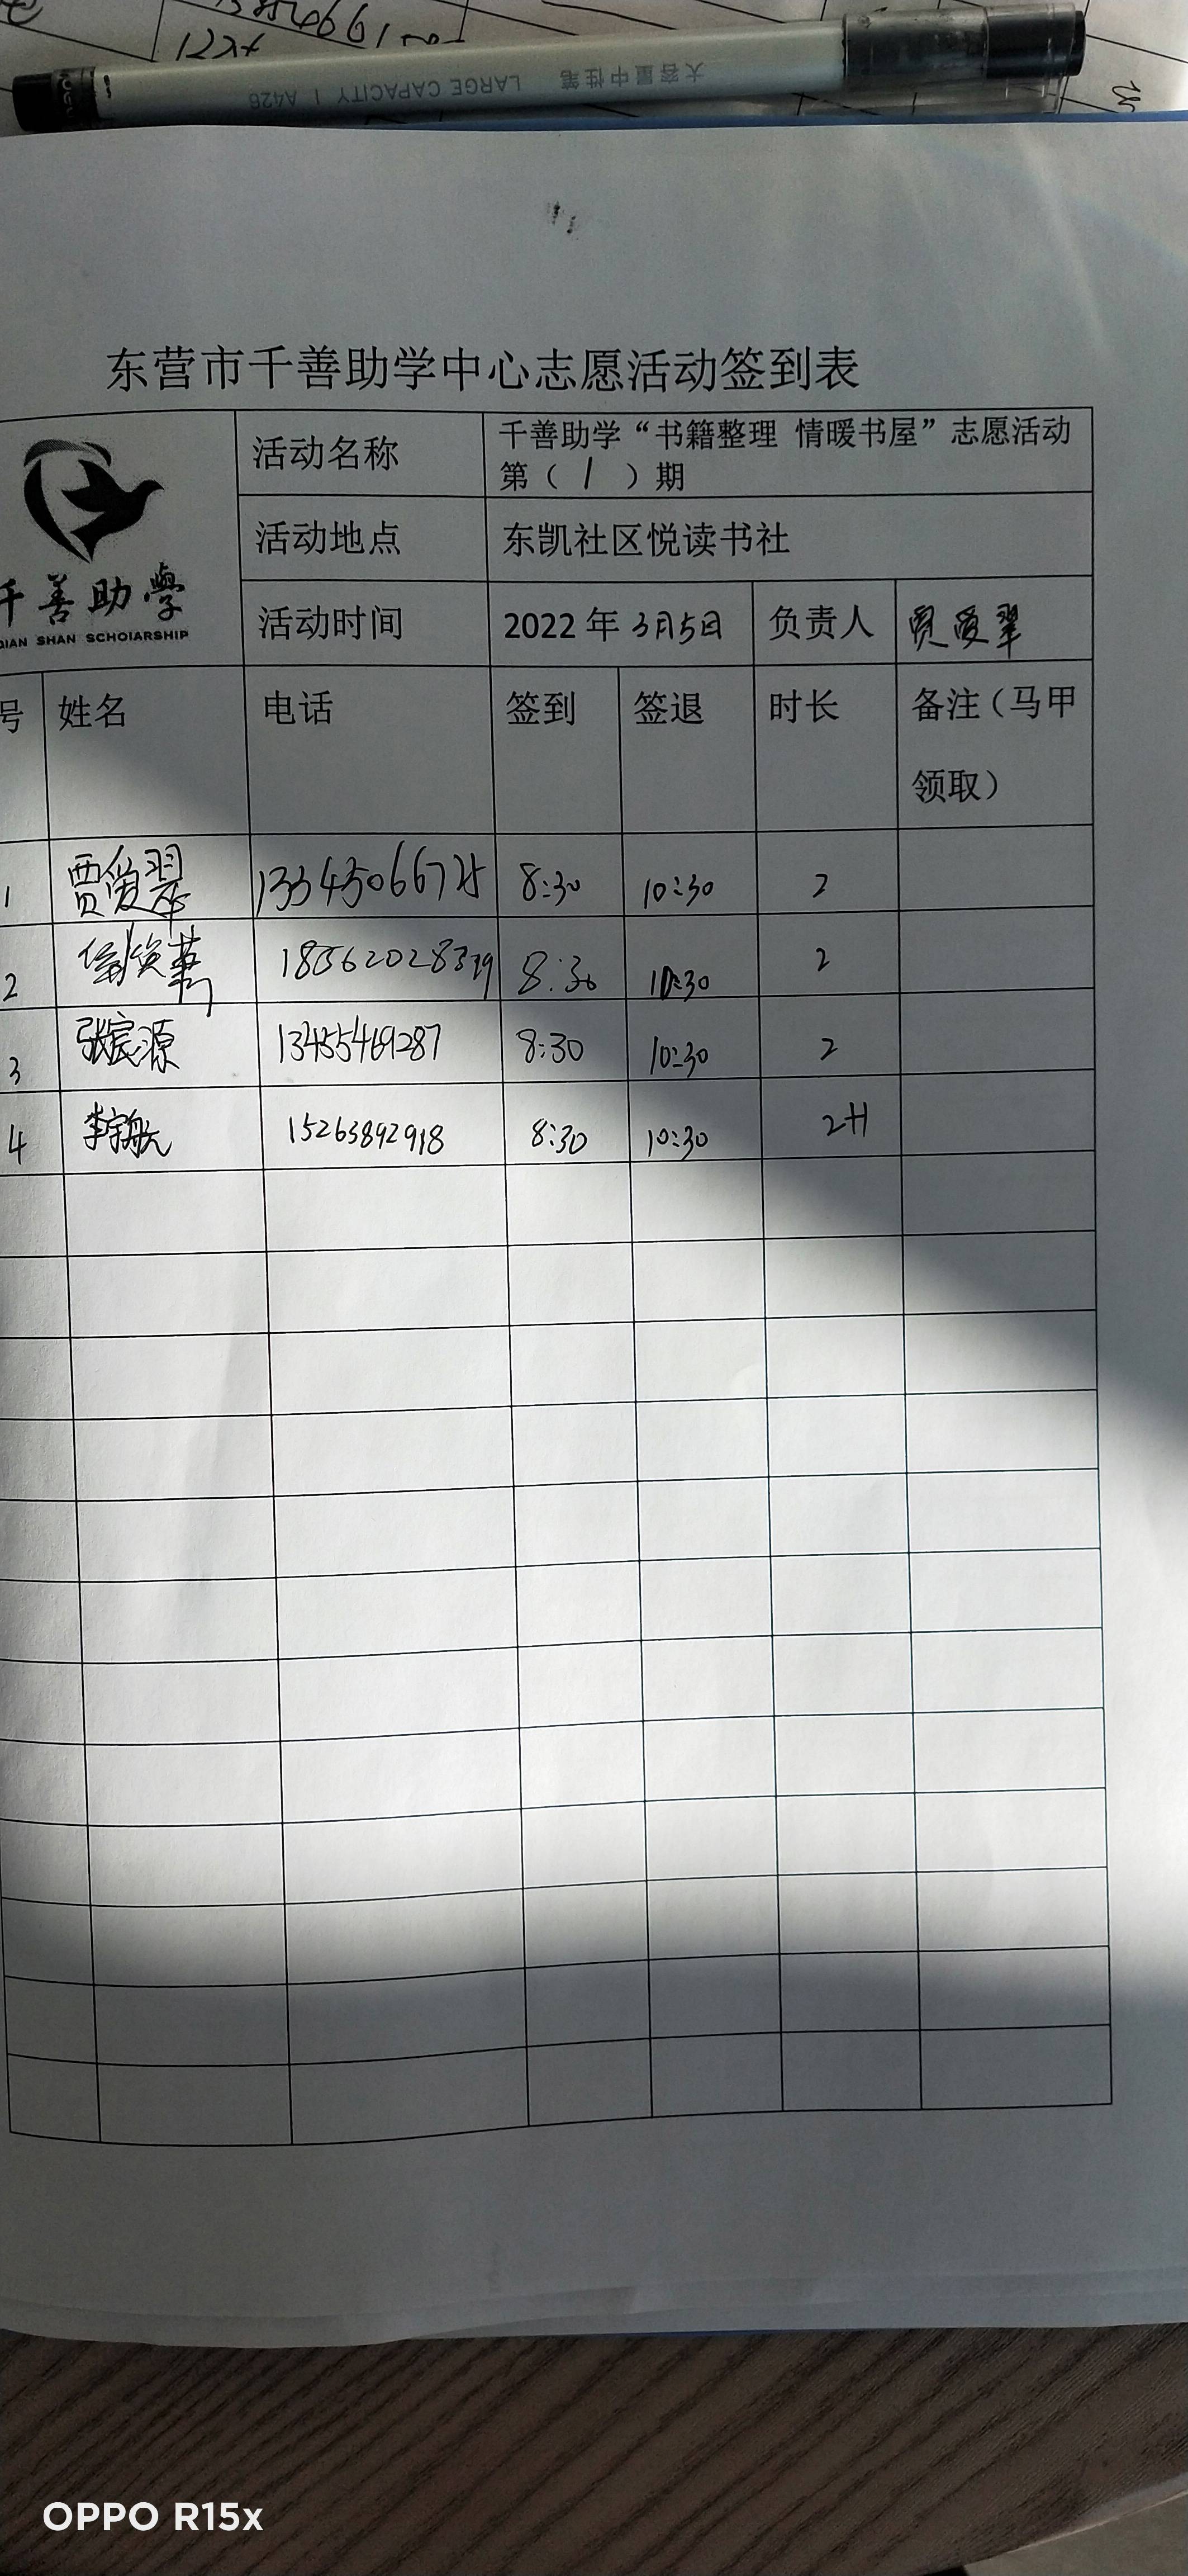 大容量中性笔 LARGE CAPACITY | A426
东营市千善助学中心志愿活动签到表
千善助學
QIAN SHAN SCHOIARSHIP
活动名称 千善助学“书籍整理 情暖书屋”志愿活动
第（ 1 ）期
活动地点 东凯社区悦读书社
活动时间 2022年3月5日 负责人 贾爱翠
号 姓名 电话 签到 签退 时长 备注（马甲
领取）
1 贾爱翠 13345066725 8:30 10:30 2
2 8:30 10:30 2
3 张宸源 13455469287 8:30 10:30 2
4 李宇航 15263892918 8:30 10:30 2H
OPPO R15x